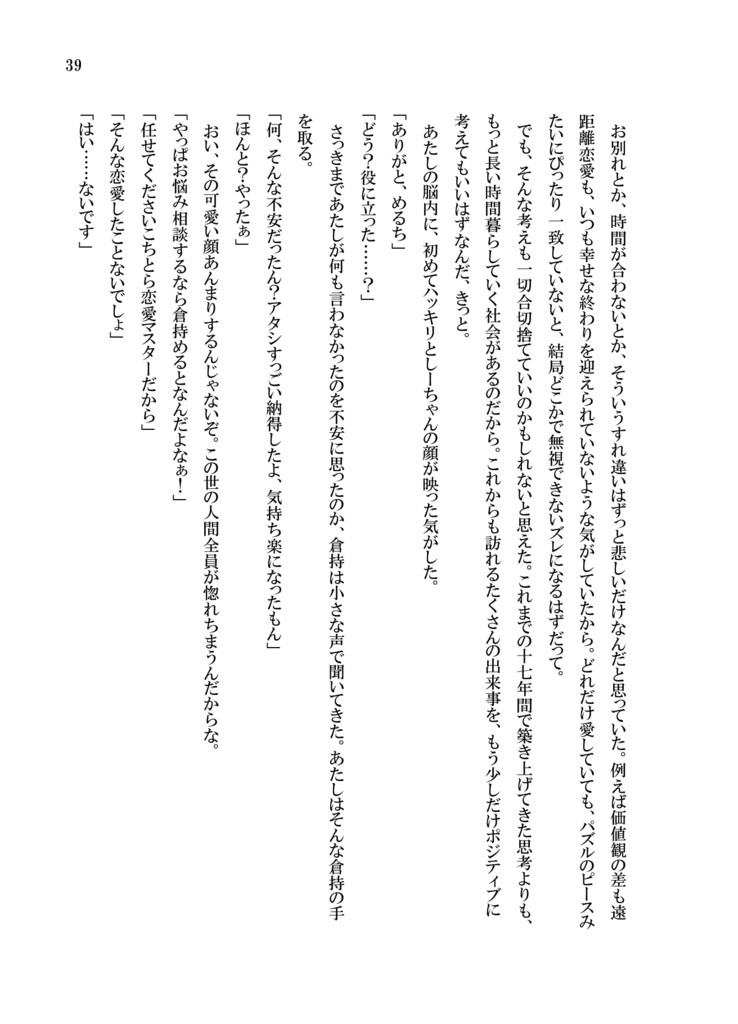 39
お別れとか、時間が合わないとか、そういうすれ違いはずっと悲しいだけなんだと思っていた。例えば価値観の差も遠
距離恋愛も、いつも幸せな終わりを迎えられていないような気がしていたから。どれだけ愛していても、パズルのピースみ
たいにぴったり一致していないと、結局どこかで無視できないズレになるはずだって。
でも、そんな考えも一切合切捨てていいのかもしれないと思えた。これまでの十七年間で築き上げてきた思考よりも、
もっと長い時間暮らしていく社会があるのだから。これからも訪れるたくさんの出来事を、もう少しだけポジティブに
考えてもいいはずなんだ、きっと。
あたしの脳内に、初めてハッキリとしーちゃんの顔が映った気がした。
「ありがと、めるち」
「どう？役に立った……？」
さっきまであたしが何も言わなかったのを不安に思ったのか、倉持は小さな声で聞いてきた。あたしはそんな倉持の手
を取る。
「何、そんな不安だったん？アタシすっごい納得したよ、気持ち楽になったもん」
「ほんと？やったぁ」
おい、その可愛い顔あんまりするんじゃないぞ。この世の人間全員が惚れちまうんだからな。
「やっぱお悩み相談するなら倉持めるとなんだよなぁ！」
「任せてくださいこちとら恋愛マスターだから」
「そんな恋愛したことないでしょ」
「はい……ないです」